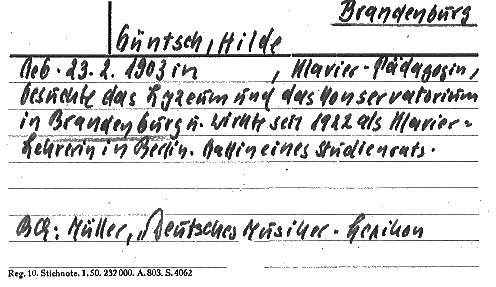 Brandenburg
Güntsch, Hilde
Geb. 23. 2. 1903 in , Klavier-Pädagogin,
besuchte das Lyzeum und das Konservatorium
in Brandenburg u. wirkte seit 1922 als Klavier=
Lehrerin in Berlin. Gattin eines Studienrats.
BQ: Müller, "Deutsches Musiker-Lexikon
Reg. 10. Stichnote. 1, 50. 232 000. A. 803. S. 4062